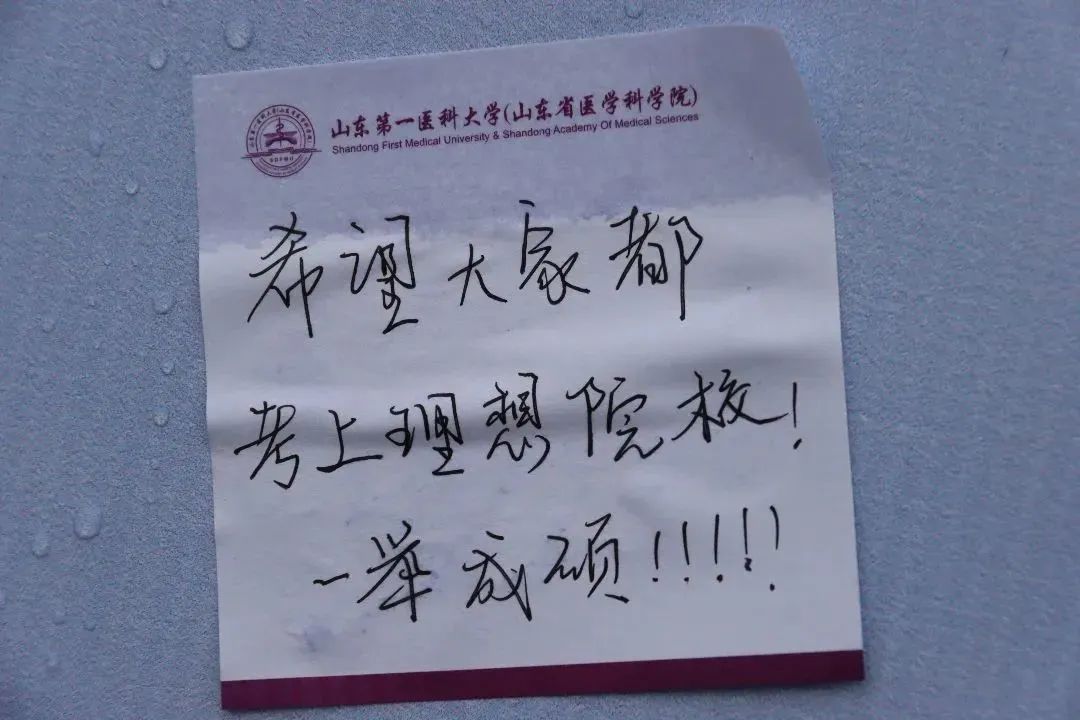 山东第一医科大学(山东省医学科学院)
Shandong First Medical University & Shandong Academy Of Medical Sciences
希望大家都
考上理想院校!
一举成硕!!!!!